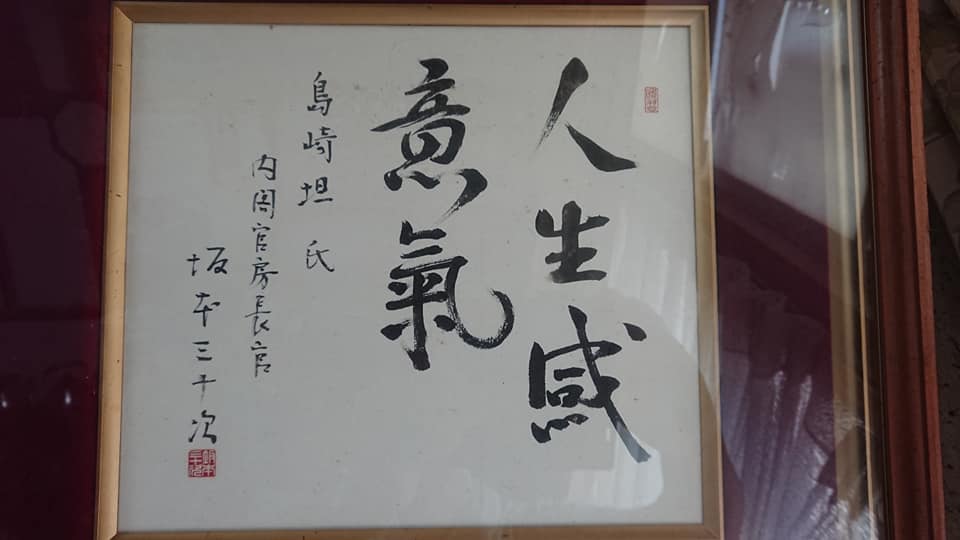 人生感
意氣
島崎坦 氏
内閣官房長官
坂本三十次